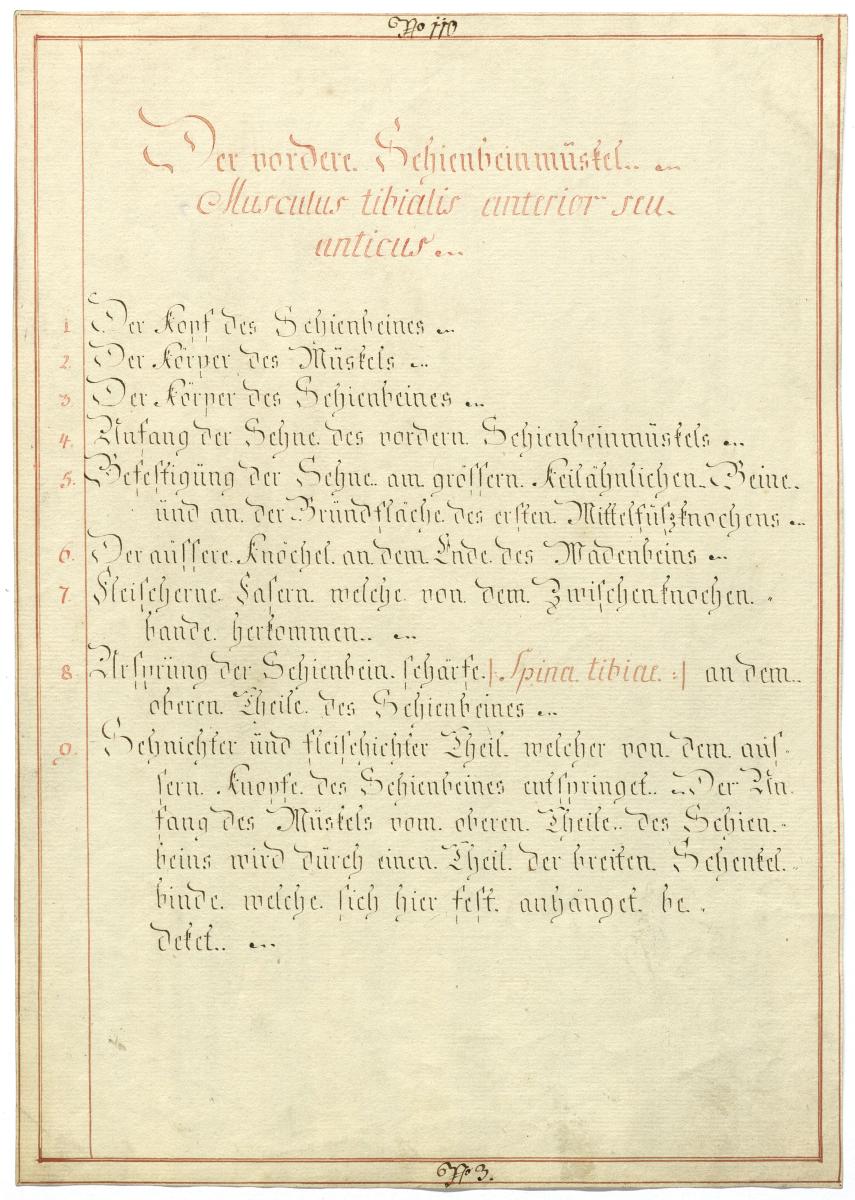 No 110
Der vordere Schienbeinmüskel.
Musculus tibialis anterior seu
anticus.
1. Der Kopf des Schienbeines.
2. Der Körper des Müskels.
3. Der Körper des Schienbeines.
4. Anfang der Sehne des vordern Schienbeinmüskels.
5. Befestigüng der Sehne am grössern Keilähnlichen Beine
und an der Gründfläche des ersten Mittelfüszknochens.
6. Der aüssere Knöchel an dem Ende des Wadenbeins.
7. Fleischerne Fasern welche von dem Zwischenknochen-
bande herkommen.
8. Ursprüng der Schienbein schärfe |: Spina tibiae :| an dem
oberen Theile des Schienbeines.
9. Sehnichter ünd fleischichter Theil welcher von dem aüs-
sern Knopfe des Schienbeines entspringet. Der An-
fang des Müskels vom oberen Theile des Schien-
beins wird dürch einen Theil der breiten Schenkel-
binde welche sich hier fest anhänget be-
deket.
No 3.